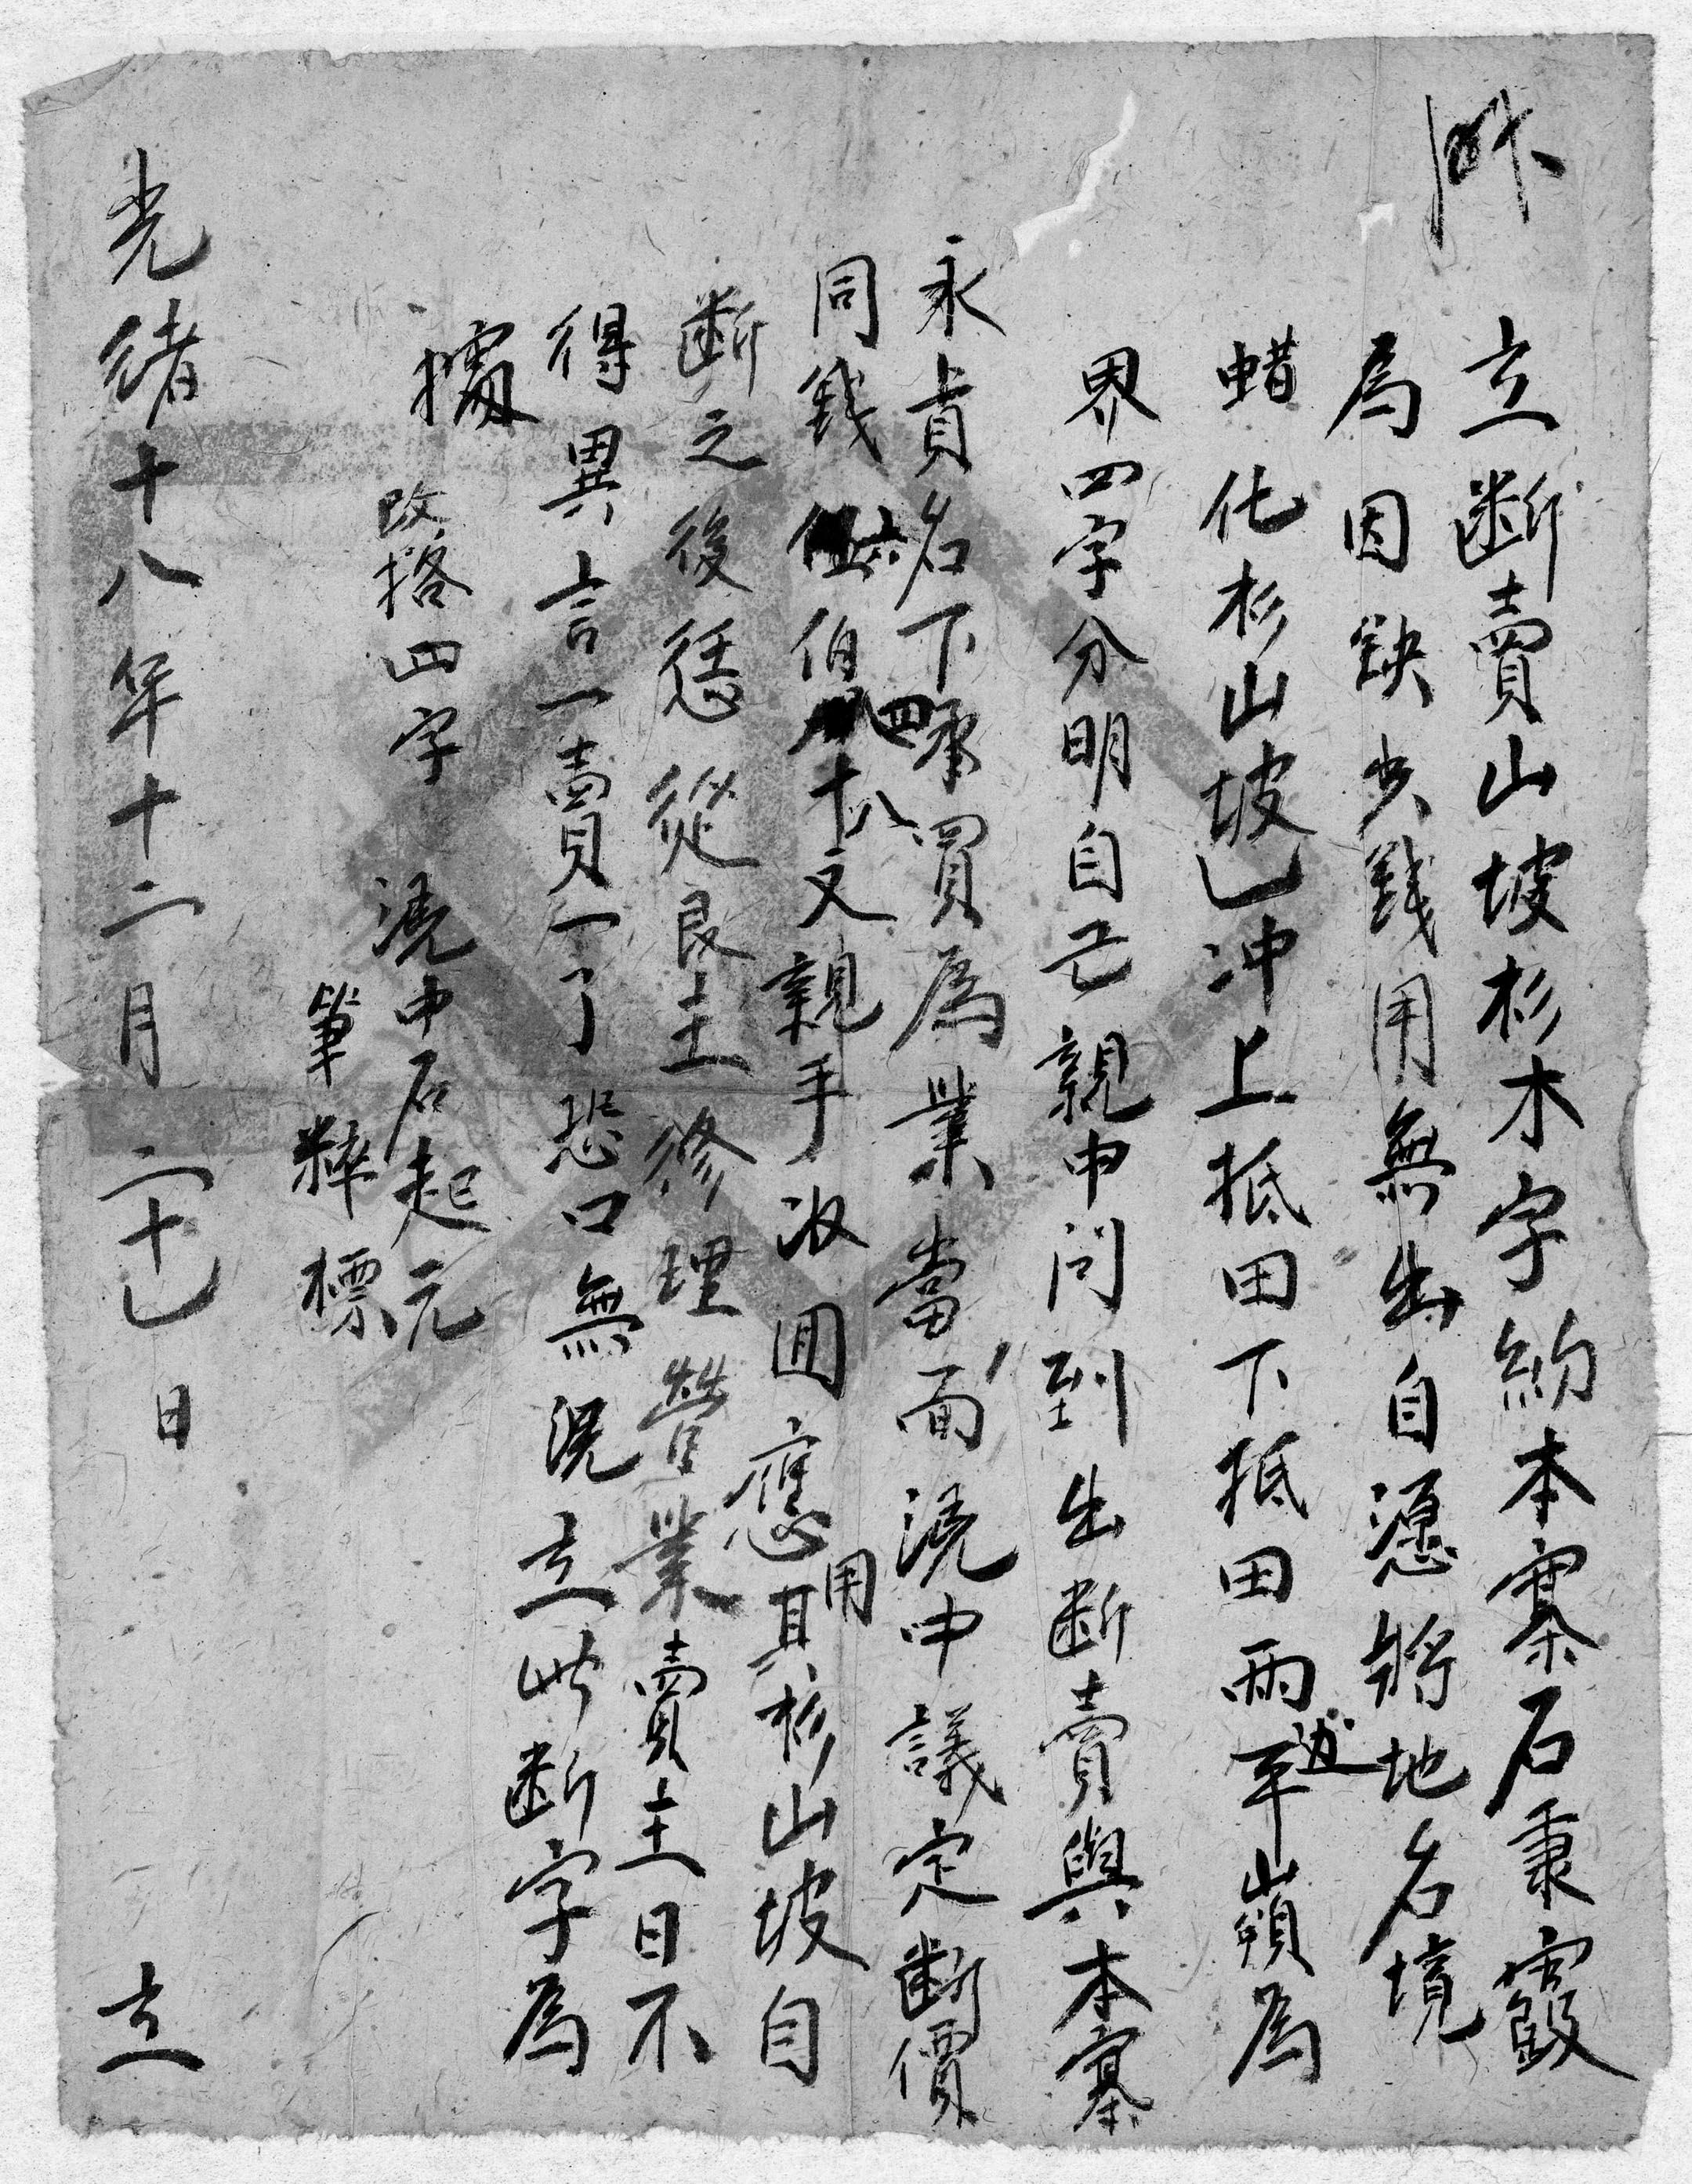 立断賣山坡杉木字約本寨石秉霞
爲因缺少錢用無出自愿將地名境
蜡化杉山坡乙冲上抵田下抵田兩邊平嶺爲
界四字分明自己親中问到出断賣與本寨
永貞名下承買爲業當面凴中議定断價
同錢六伯四十八文親手收囬應用其杉山坡自
断之後恁從良主修理營業賣主日不
得異言一賣一了恐口無凭立此断字爲
據
改掿四字 凴中石起元
筆粹標
光緒十八年十二月二十七日 立